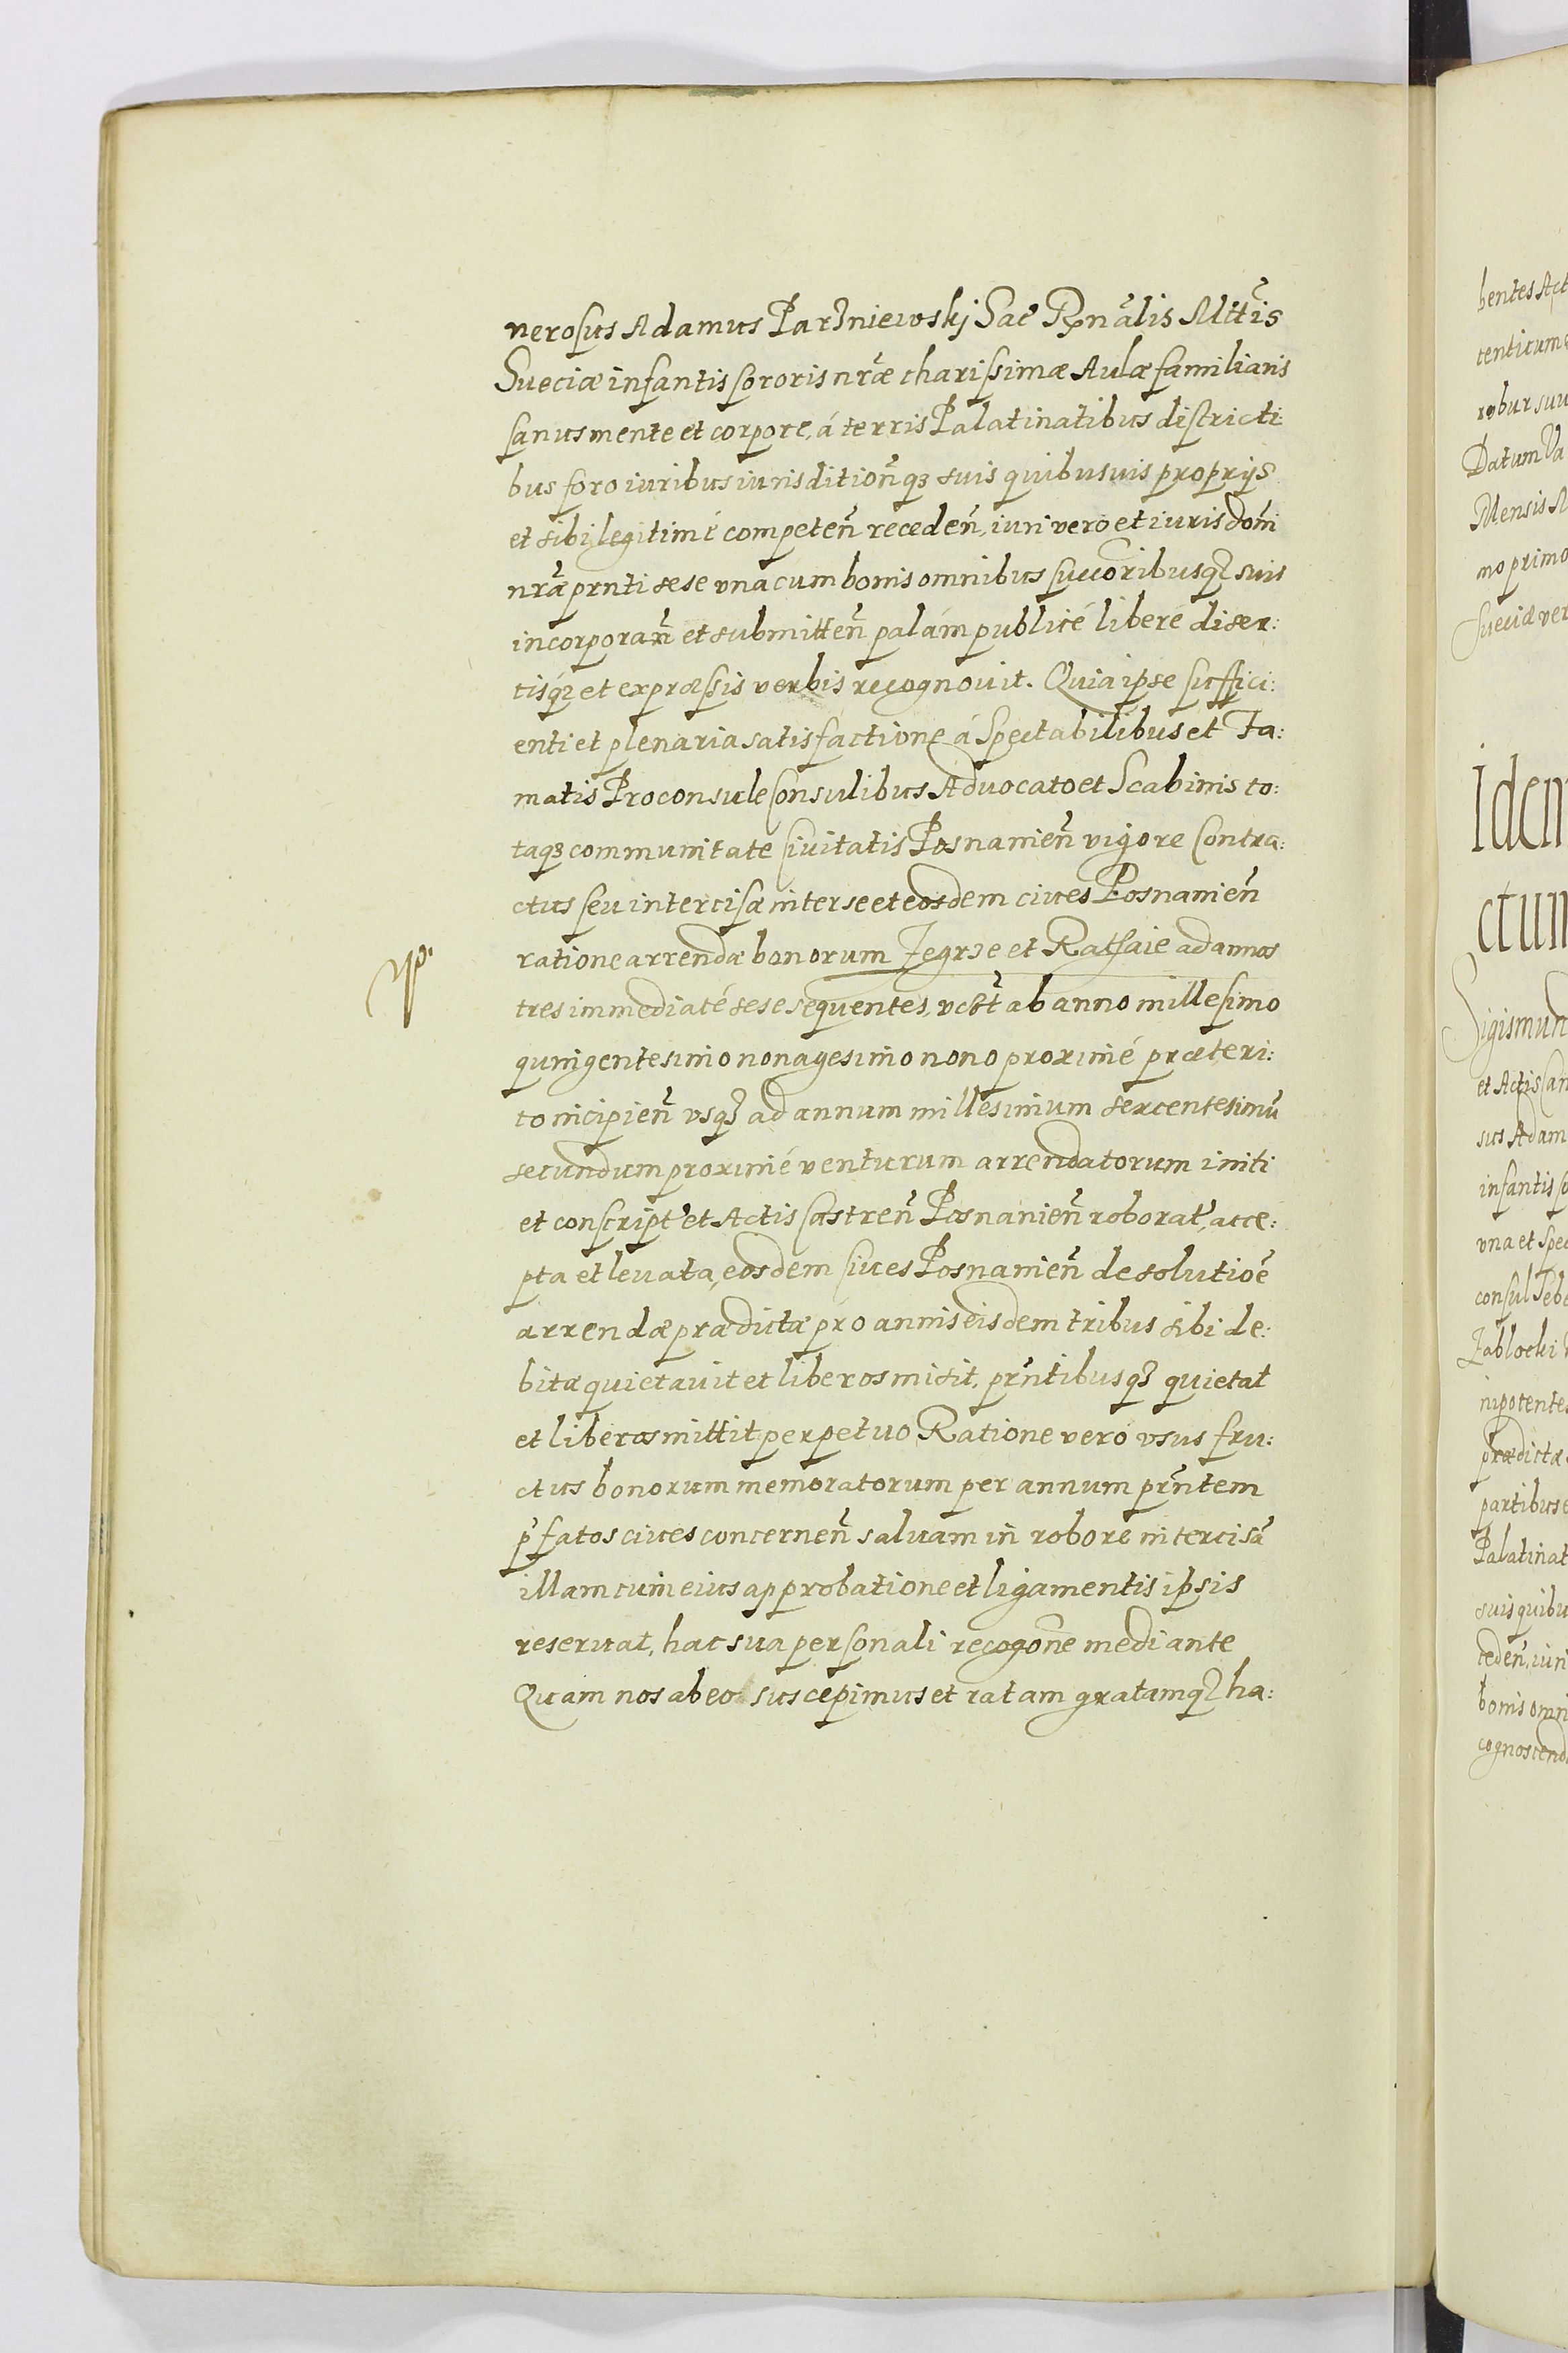 nerosus Adamus Parzniewskj Sac Rgnalis Mttis
Sueciæ infantis sororis nræ charissimæ Aulæ familiaris
sanus mente et corpore, á terris Palatinatibus districti
bus foro iuribus iurisdition̄q3 suis quibusuis proprijs
et sibi legitimé competen̄ receden̄, iuri vero et iurisdom̄
nræ prnti sese vna cum bonis omnibus succoribusq3 suis
incorporan̄ et submitten̄ palám publicé liberé diser:
tisq3 et expræssis verbis recognouit. Quia ipse suffici:
enti et plenaria satisfactione á Spectabilibus et Fa:
matis Proconsule Consulibus Aduocato et Scabinis to:
taq3 communitate Ciuitatis Posnanien̄ vigore Contra:
ctus seu intercisæ inter se et eosdem ciues Posnanien̄
ratione arrendæ bonorum Zegrze et Rattaie ad annos
tres immediaté sese sequentes, vclt ab anno millesimo
quingentesimo nonagesimo nono proximé præteri:
to incipien̄ vsq3 ad annum millesimum sexcentesimū
secundum proximé venturum arrendatorum initi
et conscript et Actis Castren̄ Posnanien̄ roborat, acce:
pta et leuata, eosdem Ciues Posnanien̄ de solutioē
arrendæ prædictæ pro annis eisdem tribus sibi de:
bitæ quietauit et liberos misit, prntibusq3 quietat
et liberos mittit perpetuo Ratione vero vsus fru:
ctus bonorum memoratorum per annum prntem
p fatos ciues concernen̄ saluam in robore intercisā
illam cum eius approbatione et ligamentis ipsis
reseruat, hac sua personali recogone mediante
Quam nos ab eo suscepimus et ratam gratamq3 ha:
bentes Act
tenticum
robur suu
Datum Va
Mensis
mo primo
Sueciæ ver
Idem
ctum
Sigismun
et Actis Can
sus Adam
infantis so
vna et Spec
consul
Zablocki
nipotentes
prædictæ
partibus e
Palatinat
suis quibu
ceden̄, iuri
bonis omni
cognoscend